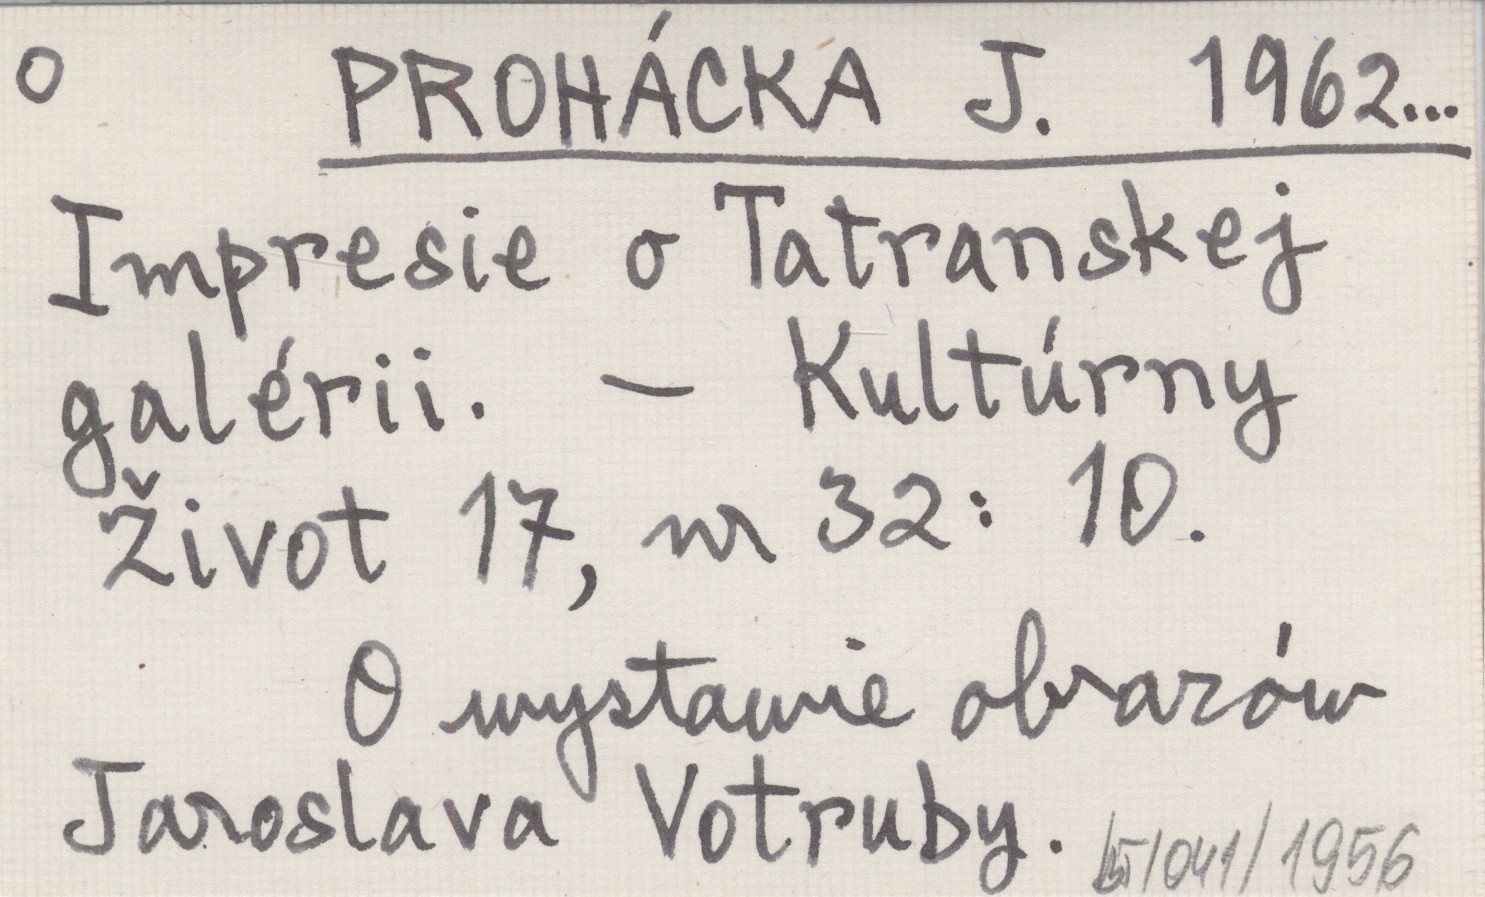 o PROHÁCKA J. 1962...
Impresie o Tatranskej
galérii. – Kultúrny
Život 17, nr 32: 10.
O wystawie obrazów
Jaroslava Votruby.
/041/1956